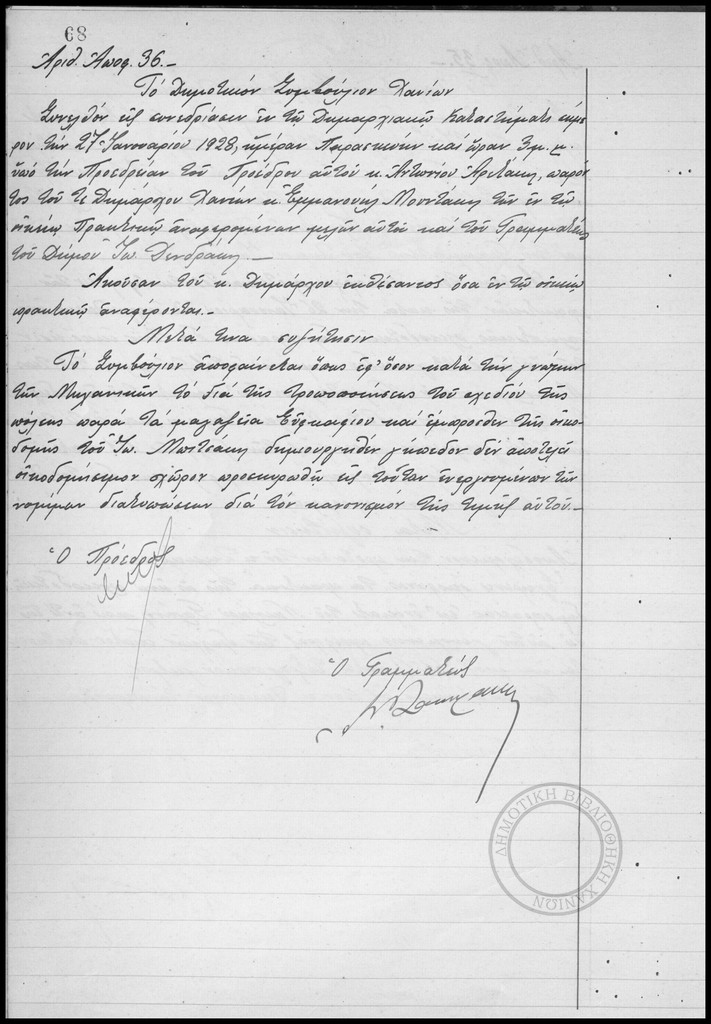 68
Ἀριθ. Ἀποφ. 36.–
Τό Δημοτικόν Συμβούλιον Χανίων
Συνελθόν εἰς συνεδρίασιν ἐν τῷ Δημαρχιακῷ Καταστήματι σήμε
ρον τήν 27 Ἰανουαρίου 1928, ἡμέραν Παρασκευήν καί ὥραν 3 μ.μ.
ὑπό τήν Προεδρείαν τοῦ Προέδρου αὐτοῦ κ. Ἀντωνίου παρόν
τος τοῦ τε Δημάρχου Χανίων κ. Ἐμμανουήλ Μουντάκη τῶν ἐν τῷ
οἰκείῳ Πρακτικῷ ἀναφερομένων μελῶν αὐτοῦ καί τοῦ Γραμματέως
τοῦ Δήμου Ἰω. Δενδράκη.–
Ἀκοῦσαν τοῦ κ. Δημάρχου ἐκθέσαντος ὅσα ἐν τῷ οἰκείῳ
πρακτικῷ ἀναφέρονται.–
Μετά τινα συζήτησιν
Τό Συμβούλιον ἀποφαίνεται ὅπως ἐφ' ὅσον κατά τήν γνώμην
τῶν Μηχανικῶν τό διά τῆς τροποποιήσεως τοῦ σχεδίου τῆς
πόλεως παρά τά μαγαζεῖα Εὐκαφίου καί ἔμπροσθεν τῆς οἰκο
δομῆς τοῦ Ἰω. Μπιτσάκη δημιουργηθέν γήπεδον δέν ἀποτελεῖ
οἰκοδομήσιμον χῶρον προσκυρωθῇ εἰς τοῦτον ἐνεργουμένων τῶν
νομίμων διατυπώσεων διά τόν κανονισμόν τῆς τιμῆς αὐτοῦ.–
Ὁ Πρόεδρος
Ὁ Γραμματεύς
ΔΗΜΟΤΙΚΗ ΒΙΒΛΙΟΘΗΚΗ ΧΑΝΙΩΝ